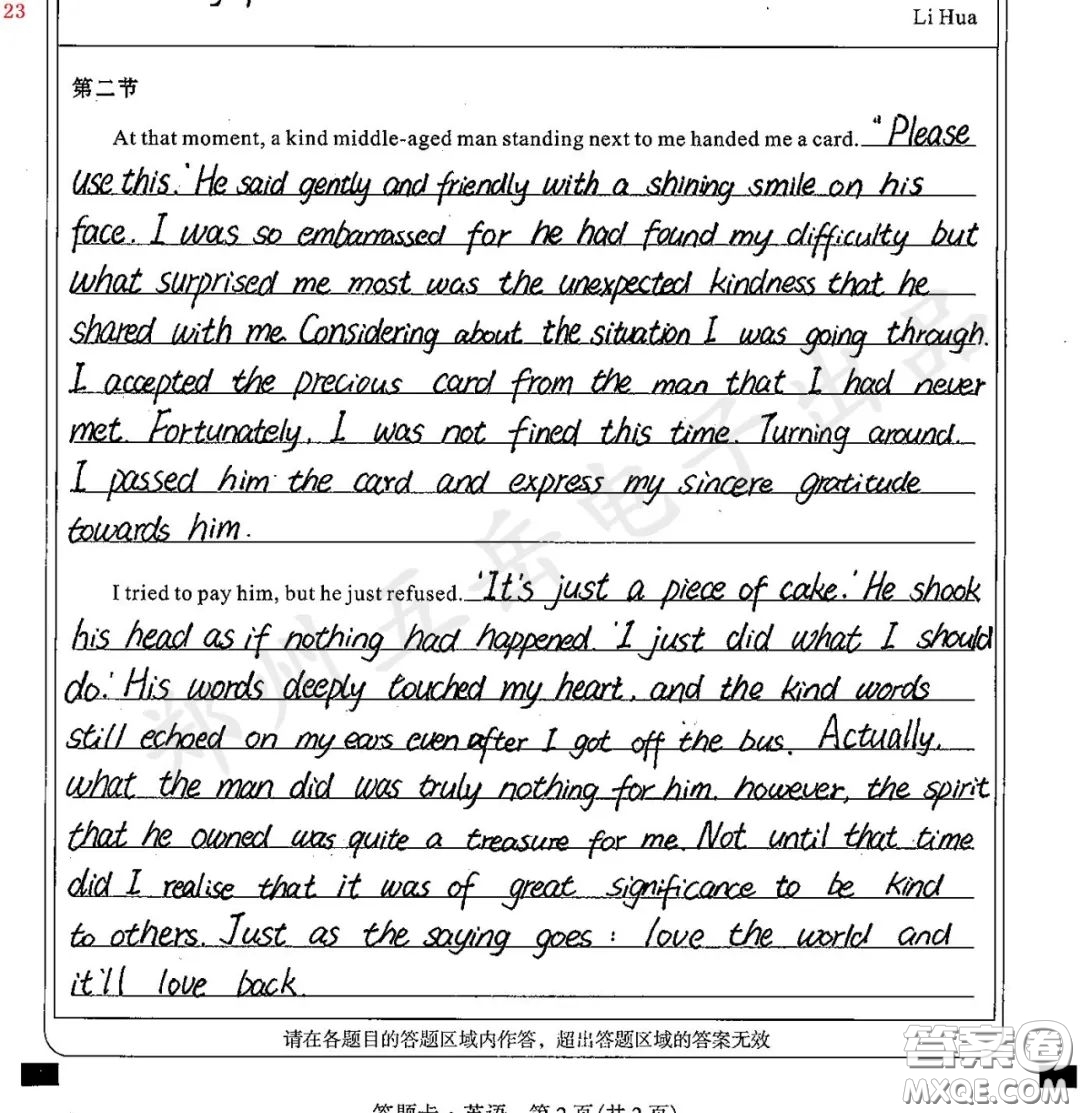 23
Li Hua
第二节
At that moment, a kind middle-aged man standing next to me handed me a card. "Please
use this.' He said gently and friendly with a shining smile on his
face. I was so embarrassed for he had found my difficulty but
what surprised me most was the unexpected kindness that he
shared with me. Considering about the situation I was going through.
I accepted the precious card from the man that I had never
met. Fortunately, I was not fined this time. Turning around.
I passed him the card and express my sincere gratitude
towards him.
I tried to pay him, but he just refused. 'It's just a piece of cake.' He shook
his head as if nothing had happened. 'I just did what I should
do.' His words deeply touched my heart, and the kind words
still echoed on my ears even after I got off the bus. Actually,
what the man did was truly nothing for him, however, the spirit
that he owned was quite a treasure for me. Not until that time
did I realise that it was of great significance to be kind
to others. Just as the saying goes : love the world and
it'll love back.
请在各题目的答题区域内作答，超出答题区域的答案无效
答题卡·英语 第2页(共2页)
郑州五岳电子出品
答案圈
MXQE.COM